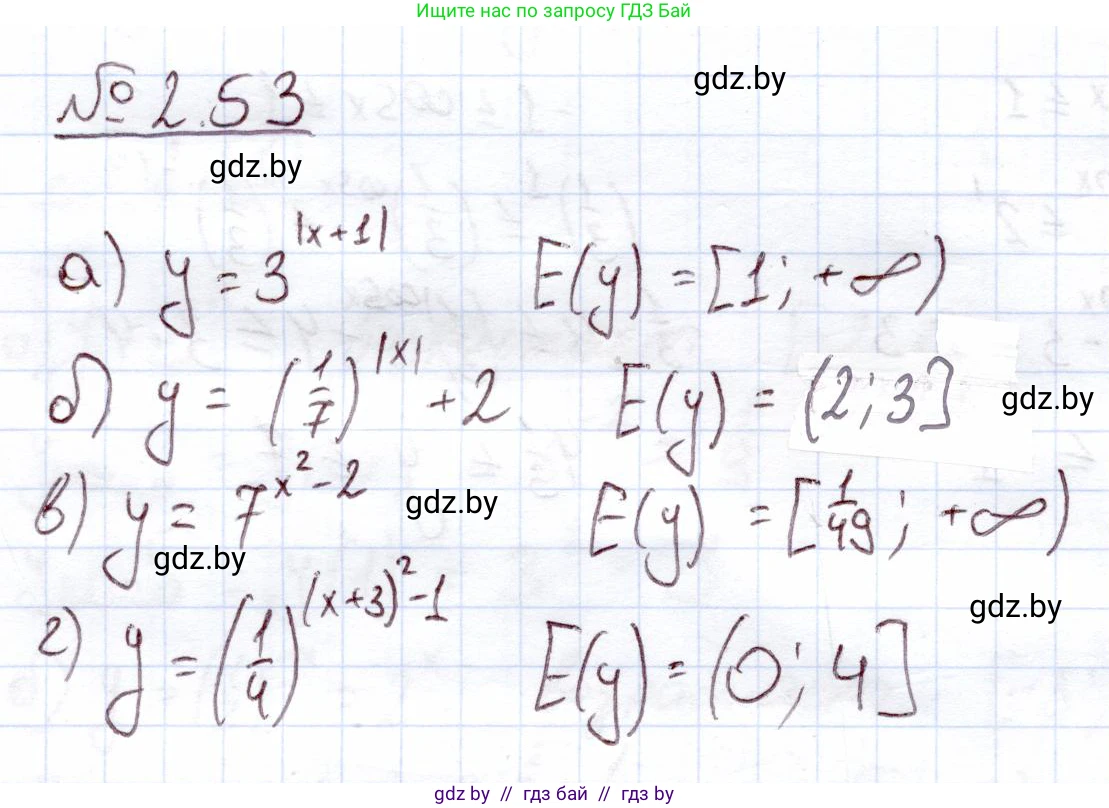 Ищите нас по запросу ГДЗ Бай
№ 2.53
gdz.by
gdz.by
а) y = 3^|x+1| E(y) = [1; +∞)
б) y = (1/7)^|x| + 2 E(y) = (2; 3]
gdz.by
в) y = 7^x²-2 E(y) = [1/49; +∞)
gdz.by
gdz.by
г) y = (1/4)^(x+3)²-1 E(y) = (0; 4]
gdz.by
gdz.by // гдз бай // гдз by